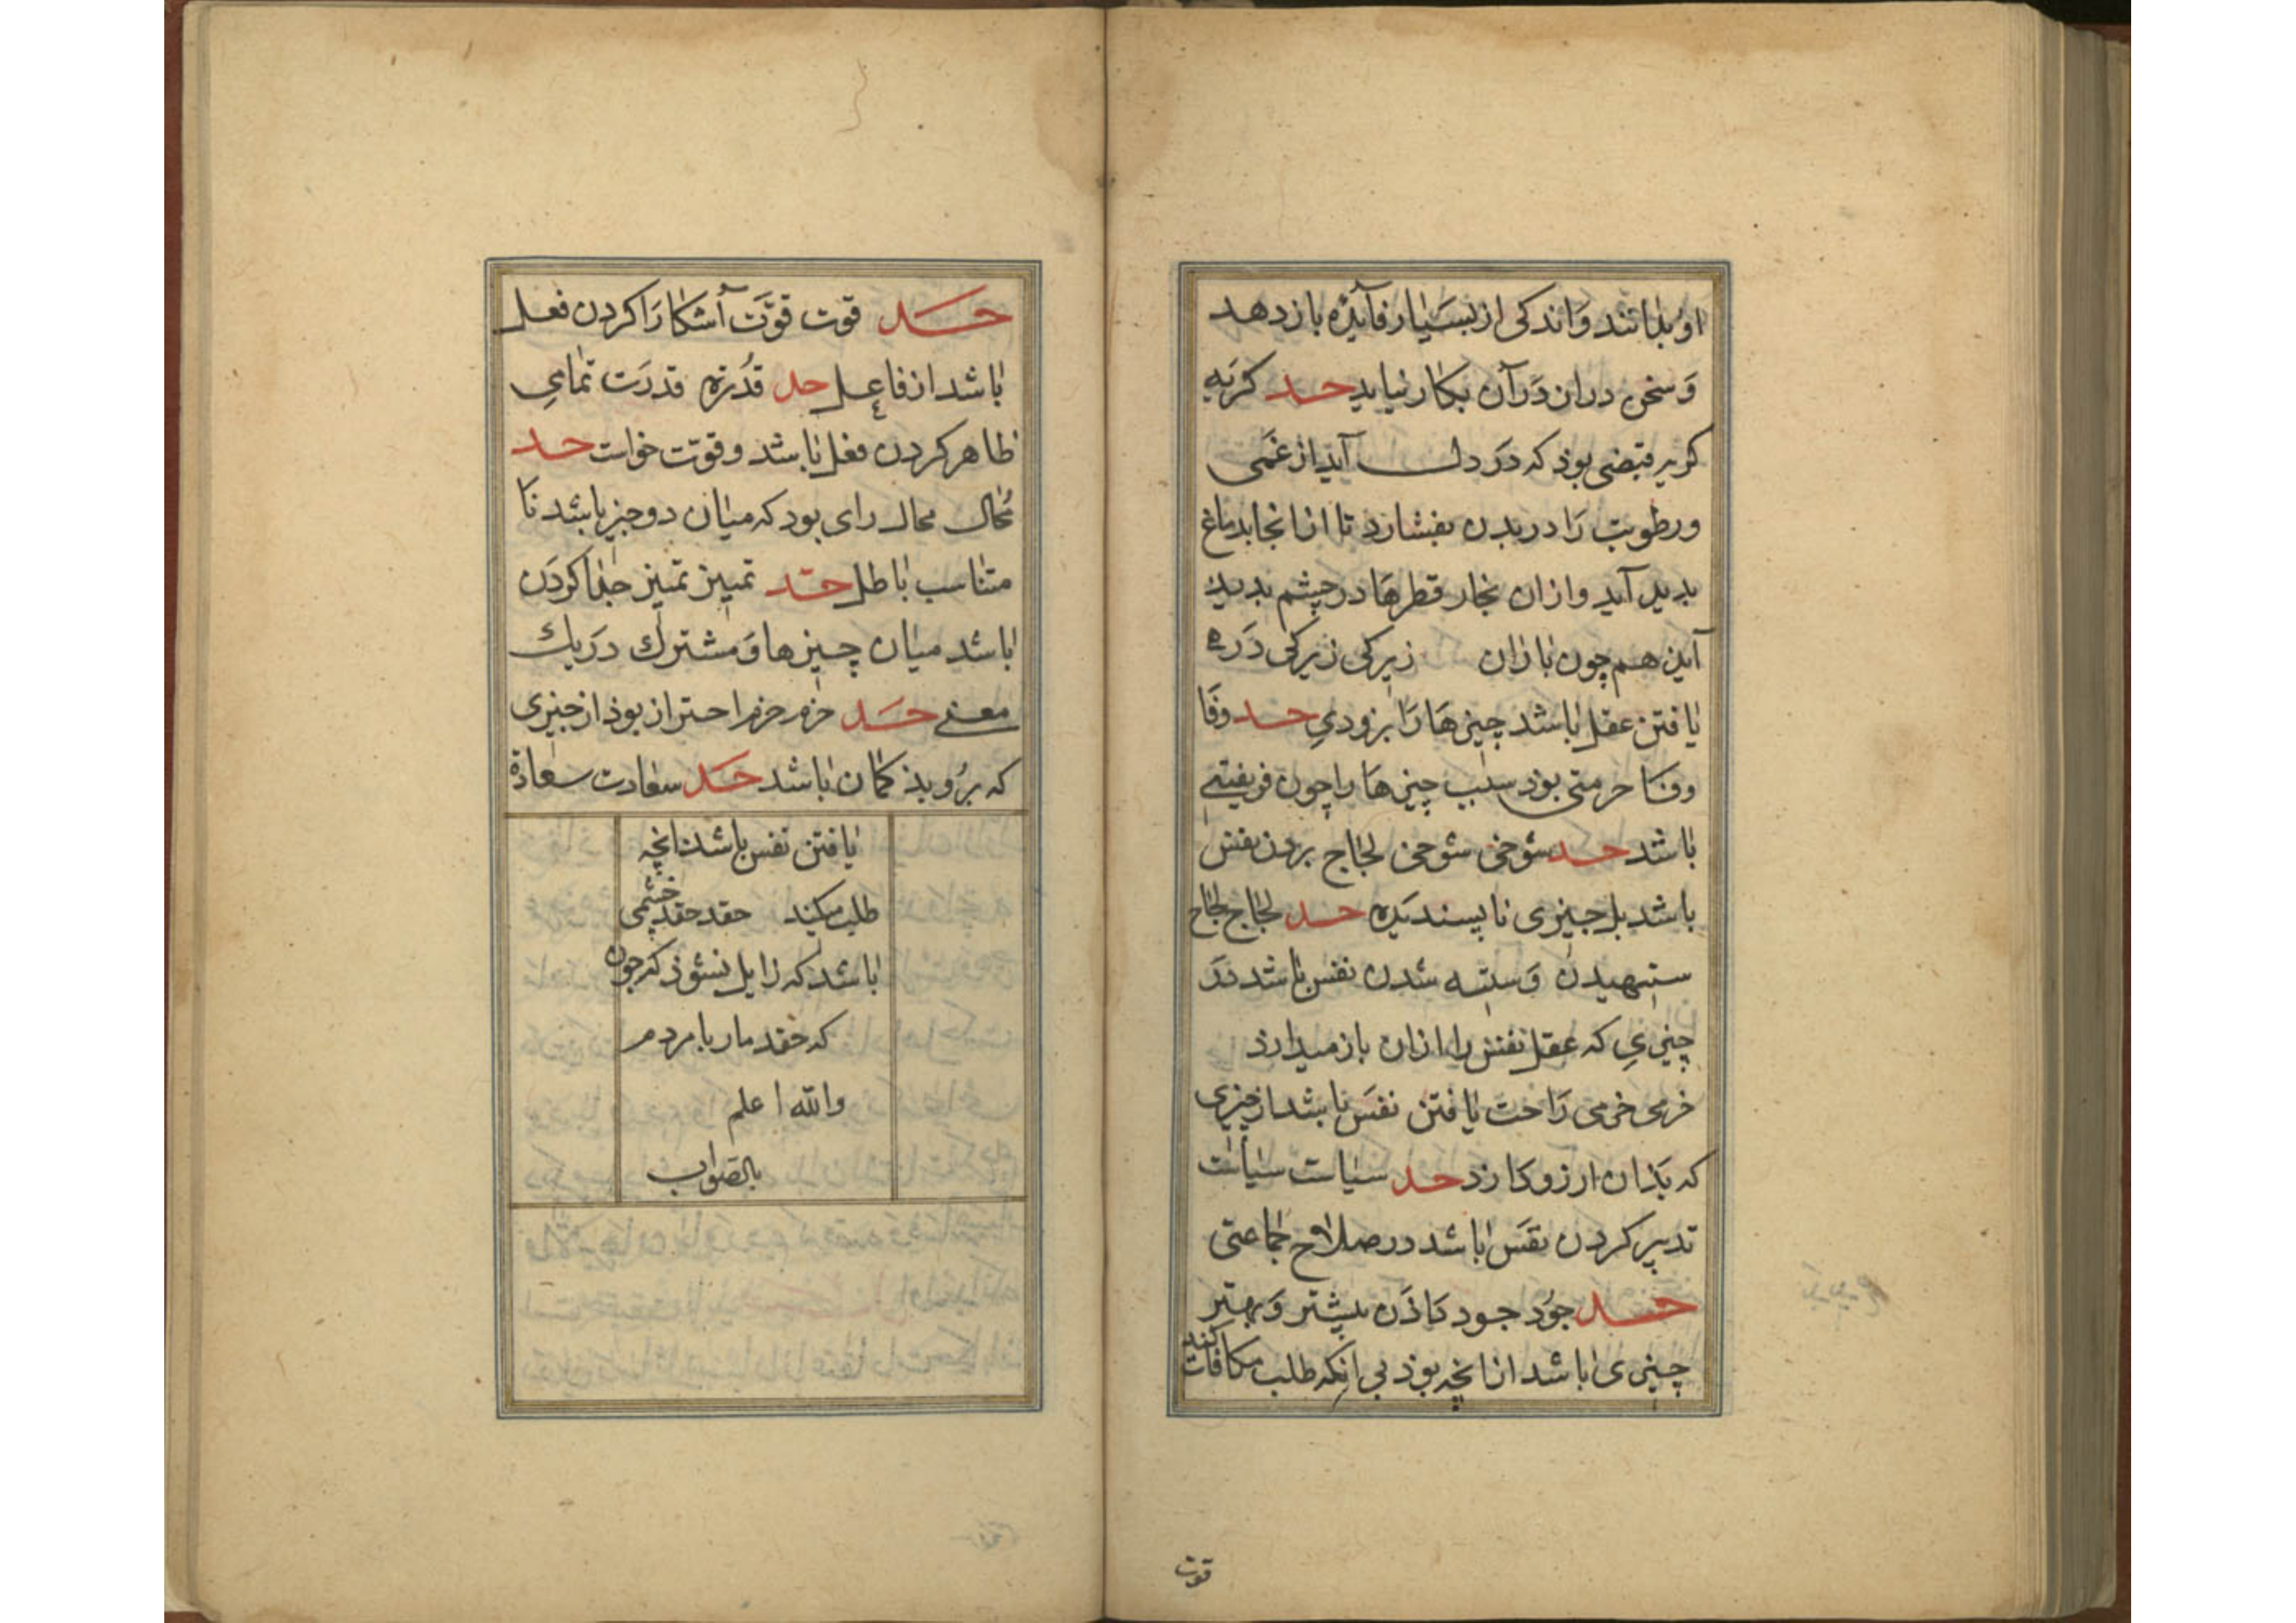 او بدانند و اندکی از بسیار فآیذه باز دهد
وَ سخن دران دَرآن بکار نیاید حد کرَیه
کریه قبضی بوذ که دَرَ دل آیذ از غَمی
و رطوبت رَا در بدن بفشارد تا از انجا بدماغ
بدید آید و ازان بخار قطرهَا در چشم بدید
آیذ هم چون باران زیرکی زیرکی دَر
یافتن عقل باشد چیزهَا رَا بزودیِ حد وفَا
وفا حرمتی بوذ سبب چیزهَا را چون فریفتی
باشد حد شوخی شوخی لجاج بردن نفس
باشد بر چیزی ناپسندیَذه حد لجاج لجاج
ستیهیدن وَ ستیه شدن نفس باشد دَر
چیزیِ که عقل نفس را ازان باز میدارذ
خرمی خرمی رَاحت یافتن نفسَ باشد از چیزی
که بَذان ارزو دارذ حد سیاست سیاست
تدبیر کردن نفسَ باشد در صلاح جماعتی
حد جوُد جود دَاذَن بیشتر وَ بهتر
چیزی باشد از انچه بوذ بی انکه طلب مکافات کند
قوت
حَد قوت قوّتَ آشکارَا کردن فعل
باشد از فاعل حد قُدرَة قدرَت تمامیِ
ظاهر کردن فعل باشد و قوّت خواست حد
مُحال محال رای بود که میان دو چیز باشد نا
متناسب باطل حد تمییز تمییز جذا کردَن
باشد میان چیزها وَ مشترک دَر یک
معنی حَد حزم حزم احتراز بوذ از چیزی
که برُو بذ کمان باشد حَد سعادت سعادة
یافتن نفس باشد انچه
طلب میکند حقد حقد خشمی
باشد که زایل نشوذ که چون
که حقد مار با مردم
والله اعلم
بالصواب